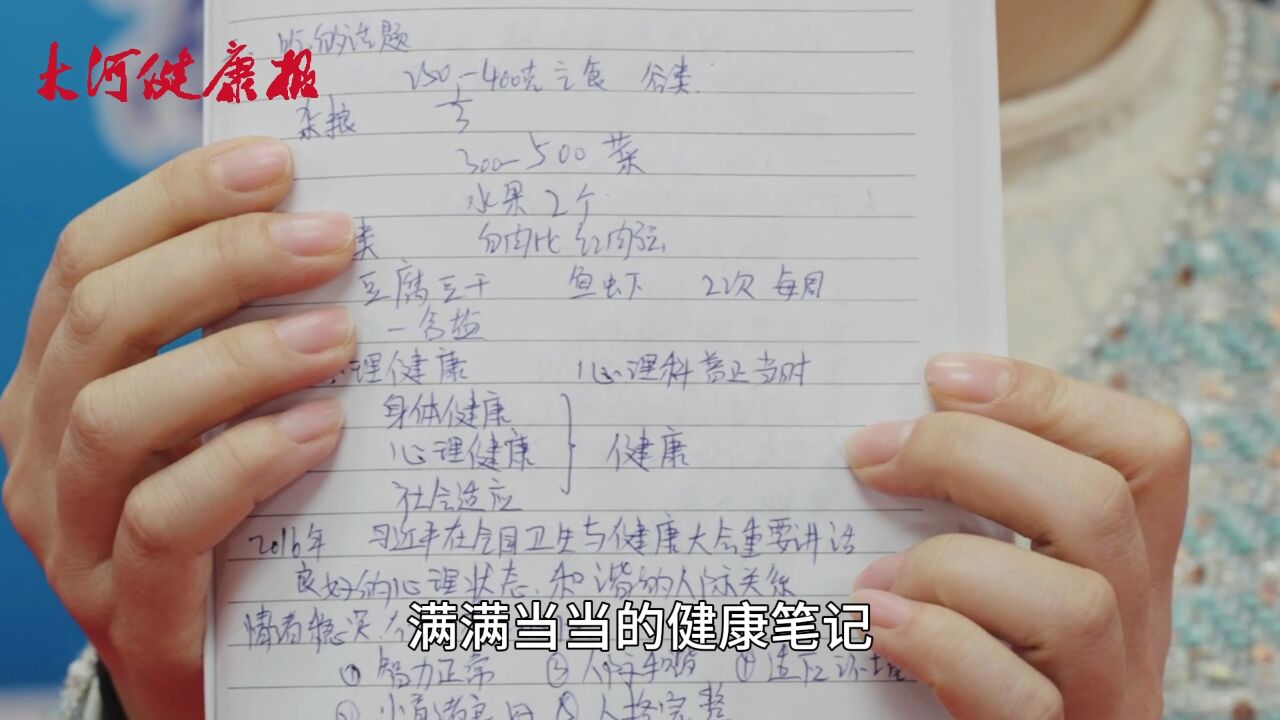 大河健康报
的话题
250-400克主食 谷类
杂粮 1/3
300-500 菜
水果 2个
类 白肉比红肉强
豆腐豆干 鱼虾 2次 每周
一含盐
理健康 心理科普正当时
身体健康
心理健康 } 健康
社会适应
2016年 习近平在全国卫生与健康大会重要讲话
良好的心理状态、和谐的人际关系
情绪稳定
满满当当的健康笔记
① 智力正常 ③ 人际和谐 ④ 适应环境
⑤ 人格完整